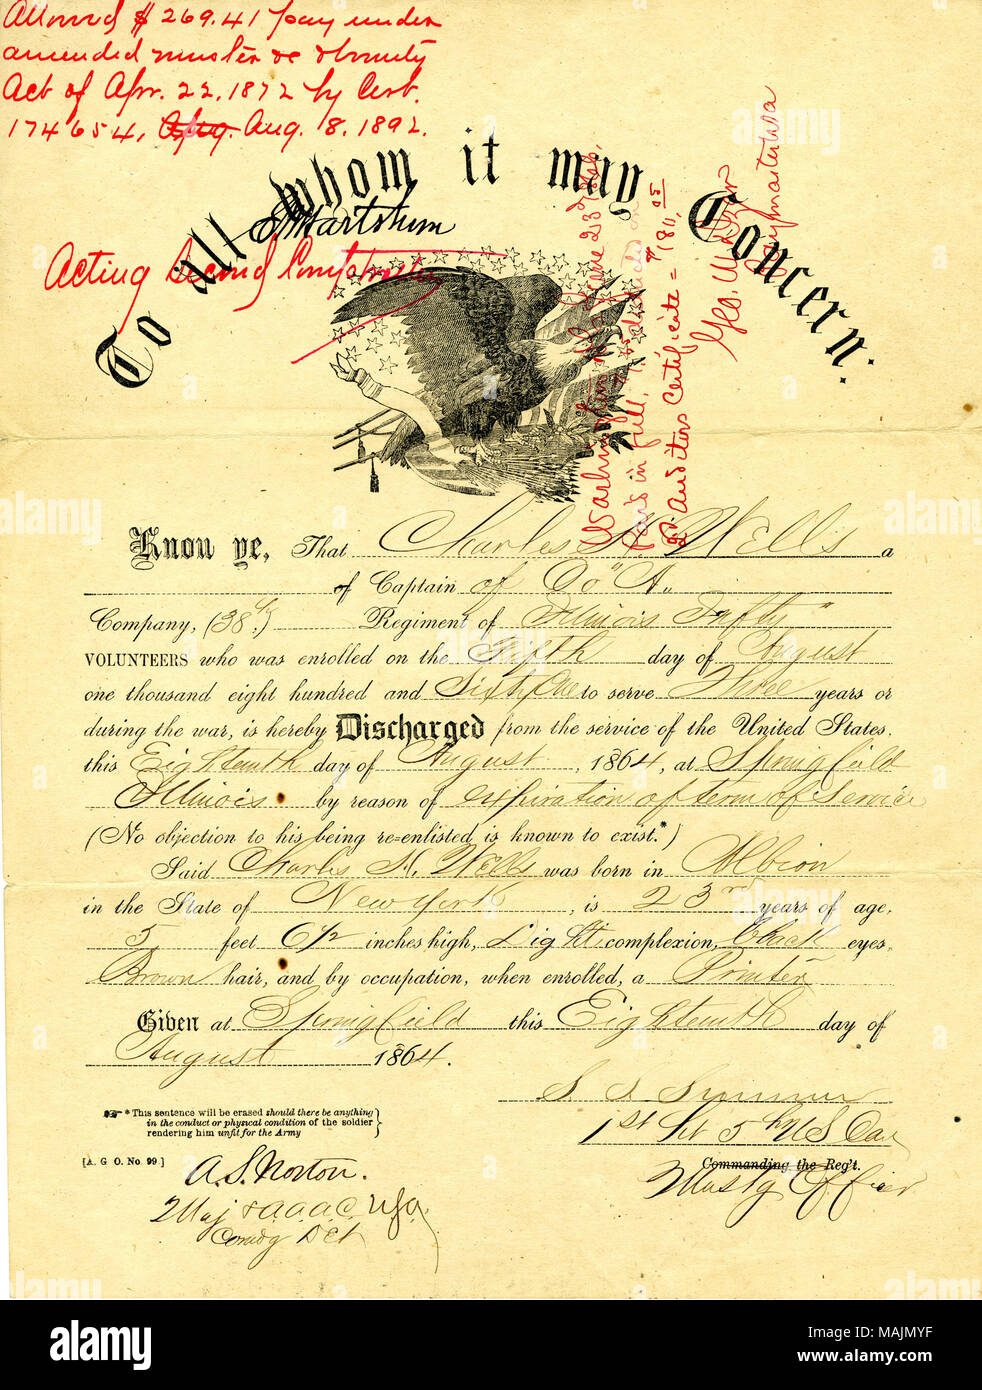 Allowed $ 269.41 pay under
amended muster & bounty
Act of Apr. 22, 1872 by Cert.
174654, Aug. 8. 1892.
To all whom it may Concern:
Hartshorn
Acting Second Comptroller
Washington June 23rd
Paid in full,
2d Auditors Certificate = $1811.05
Geo. W.
Paymaster USA
Know ye, That Charles H. Wells a
of Captain of Co "A"
Company, (38th) Regiment of Illinois Infty "
VOLUNTEERS who was enrolled on the Fifth day of August
one thousand eight hundred and Sixty One to serve Three years or
during the war, is hereby Discharged from the service of the United States,
this Eighteenth day of August, 1864, at Springfield
Illinois by reason of expiration of term of Service
(No objection to his being re-enlisted is known to exist.*)
Said Charles H. Wells was born in Albion
in the State of New York, is 23rd years of age,
5 feet 6 1/2 inches high, Light complexion, Black eyes,
Brown hair, and by occupation, when enrolled, a Printer
Given at Springfield this Eighteenth day of
August 1864.
* This sentence will be erased should there be anything
in the conduct or physical condition of the soldier
rendering him unfit for the Army
[A. G O. No. 99.]
S. S. Sumner
1st Lt 5th US Cav
Commanding the Reg't.
Mustg Officer
A. S. Norton.
Maj & A.A.A.C. USA
Comdg Det
alamy
Image ID: MAJMYF
www.alamy.com